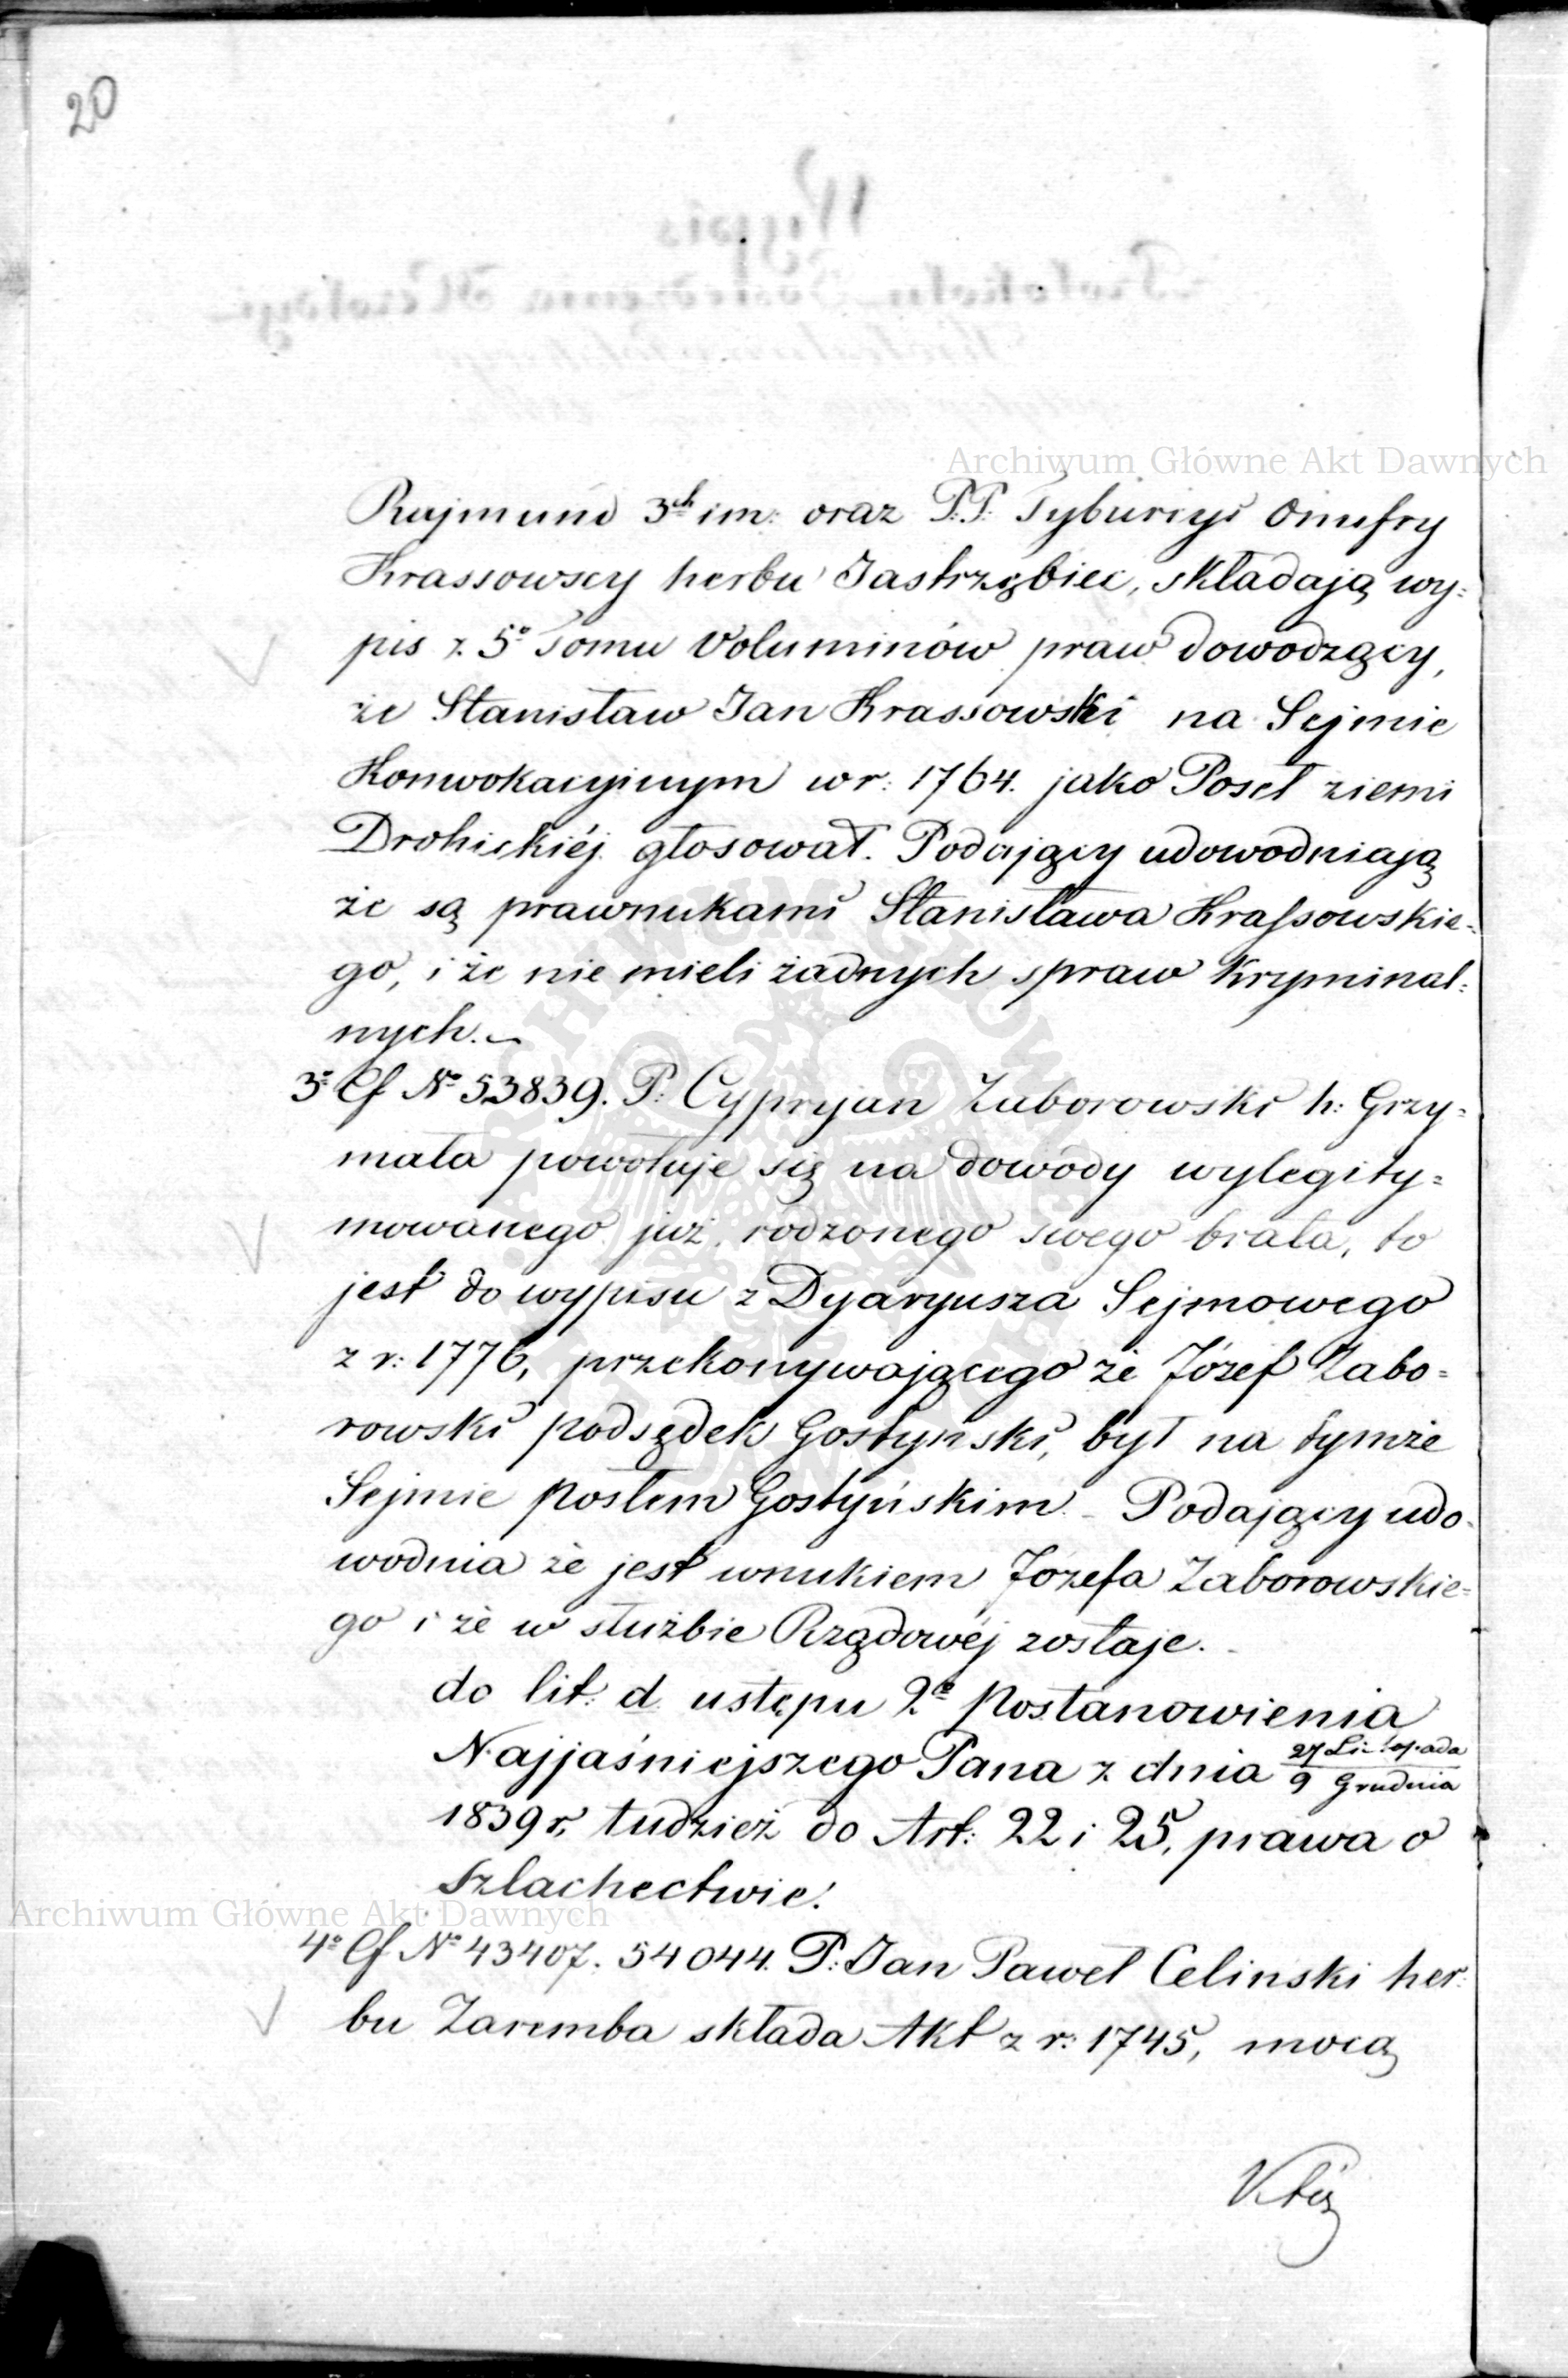 20
Archiwum Główne Akt Dawnych
Rajmund 3ch im: oraz P.P. Tyburcyi Onufry
Krassowscy herbu Jastrzębiec, składają wy=
pis z 5o Tomu Voluminów praw dowodzący,
że Stanisław Jan Krassowski na Sejmie
Konwokacyjnym w r: 1764. jako Poseł ziemi
Drohickiéj głosował. Podający udowodniają
że są prawnukami Stanisława Krassowskie=
go, i że nie mieli żadnych spraw Kryminal=
nych.
3o Cf No 53839. P: Cypryjan Zaborowski h: Grzy=
mała powołuje się na dowody wylegity=
mowanego już rodzonego swego brata, to
jest do wypisu z Dyaryusza Sejmowego
z r: 1776, przekonywającego że Józef Zabo=
rowski podsędek Gostynski, był na tymże
Sejmie posłem Gostyńskim. – Podający udo=
wodnia że jest wnukiem Józefa Zaborowskie=
go i że w służbie Rządowéj zostaje. –
do lit: d. ustępu 2o Postanowienia
Najjaśniejszego Pana z dnia 27 Listopada
9 Grudnia
1839 r, tudzież do Art: 22 i 25, prawa o
Szlachectwie.
Archiwum Główne Akt Dawnych
4o Cf No 43407. 54044. P: Jan Paweł Celinski her=
bu Zaremba składa Akt z r: 1745, mocą